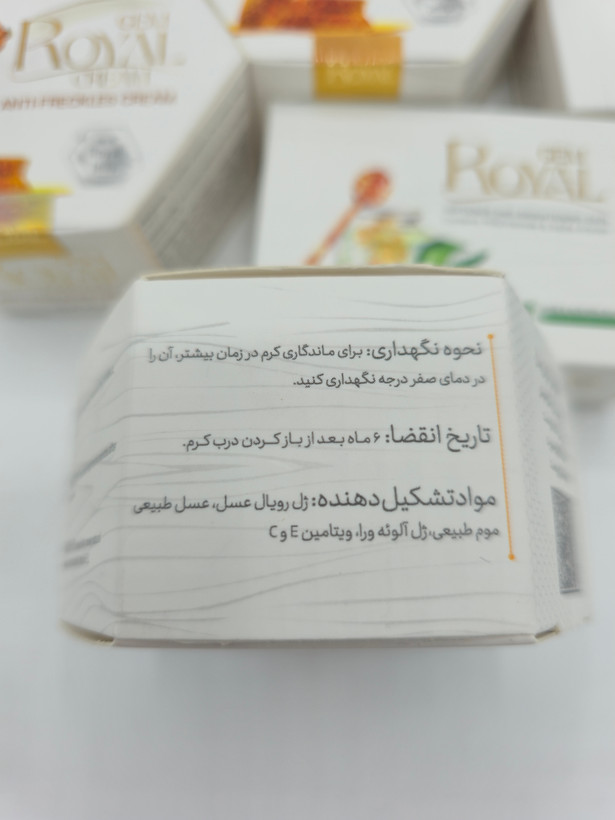 ROYAL
CREAM
ANTI FRECKLES CREAM
ROYAL
نحوه نگهداری: برای ماندگاری کرم در زمان بیشتر، آن را
در دمای صفر درجه نگهداری کنید.
تاریخ انقضا: ۶ ماه بعد از باز کردن درب کرم.
مواد تشکیل دهنده: ژل رویال عسل، عسل طبیعی
موم طبیعی، ژل آلوئه ورا، ویتامین E و C